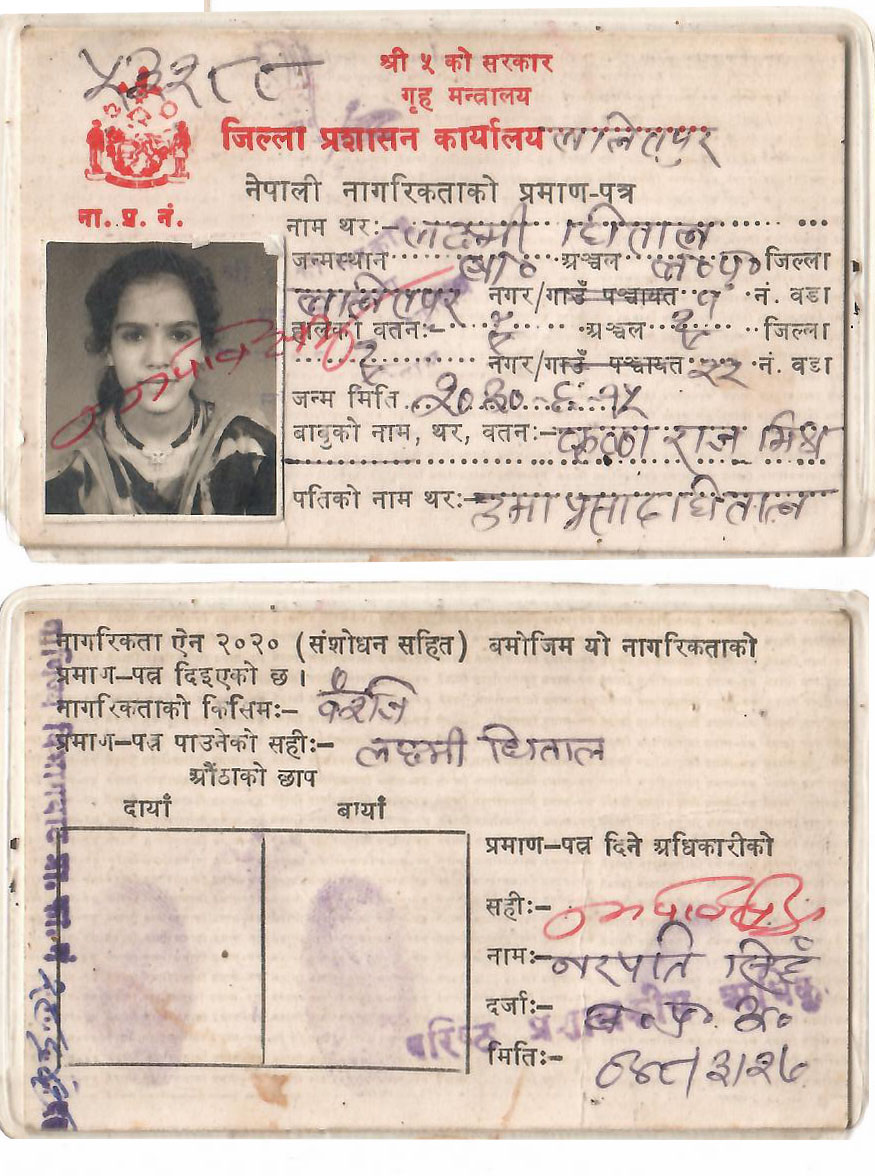 ५३२८८
श्री ५ को सरकार
गृह मन्त्रालय
जिल्ला प्रशासन कार्यालय ललितपुर
नेपाली नागरिकताको प्रमाण-पत्र
ना. प्र. नं.
नाम थर:- लक्ष्मी धिताल
जन्मस्थान बा० अञ्चल ल०पु० जिल्ला
ललितपुर नगर/गाउँ पञ्चायत नं. वडा
हालको वतन:- ऐ अञ्चल ऐ जिल्ला
ऐ नगर/गाउँ पञ्चायत २२ नं. वडा
जन्म मिति २०३०-६-१५
बाबुको नाम, थर, वतन:- कृष्ण राज मिश्र
पतिको नाम थर:- उमा प्रसाद धिताल
नागरिकता ऐन २०२० (संशोधन सहित) बमोजिम यो नागरिकताको
प्रमाण-पत्र दिइएको छ ।
नागरिकताको किसिम:- वंशज
प्रमाण-पत्र पाउनेको सही:- लक्ष्मी धिताल
औंठाको छाप
दायाँ बायाँ
प्रमाण-पत्र दिने अधिकारीको
सही:-
नाम:- नरपति सिहँ
दर्जा:- व. प्र. अ.
मिति:-